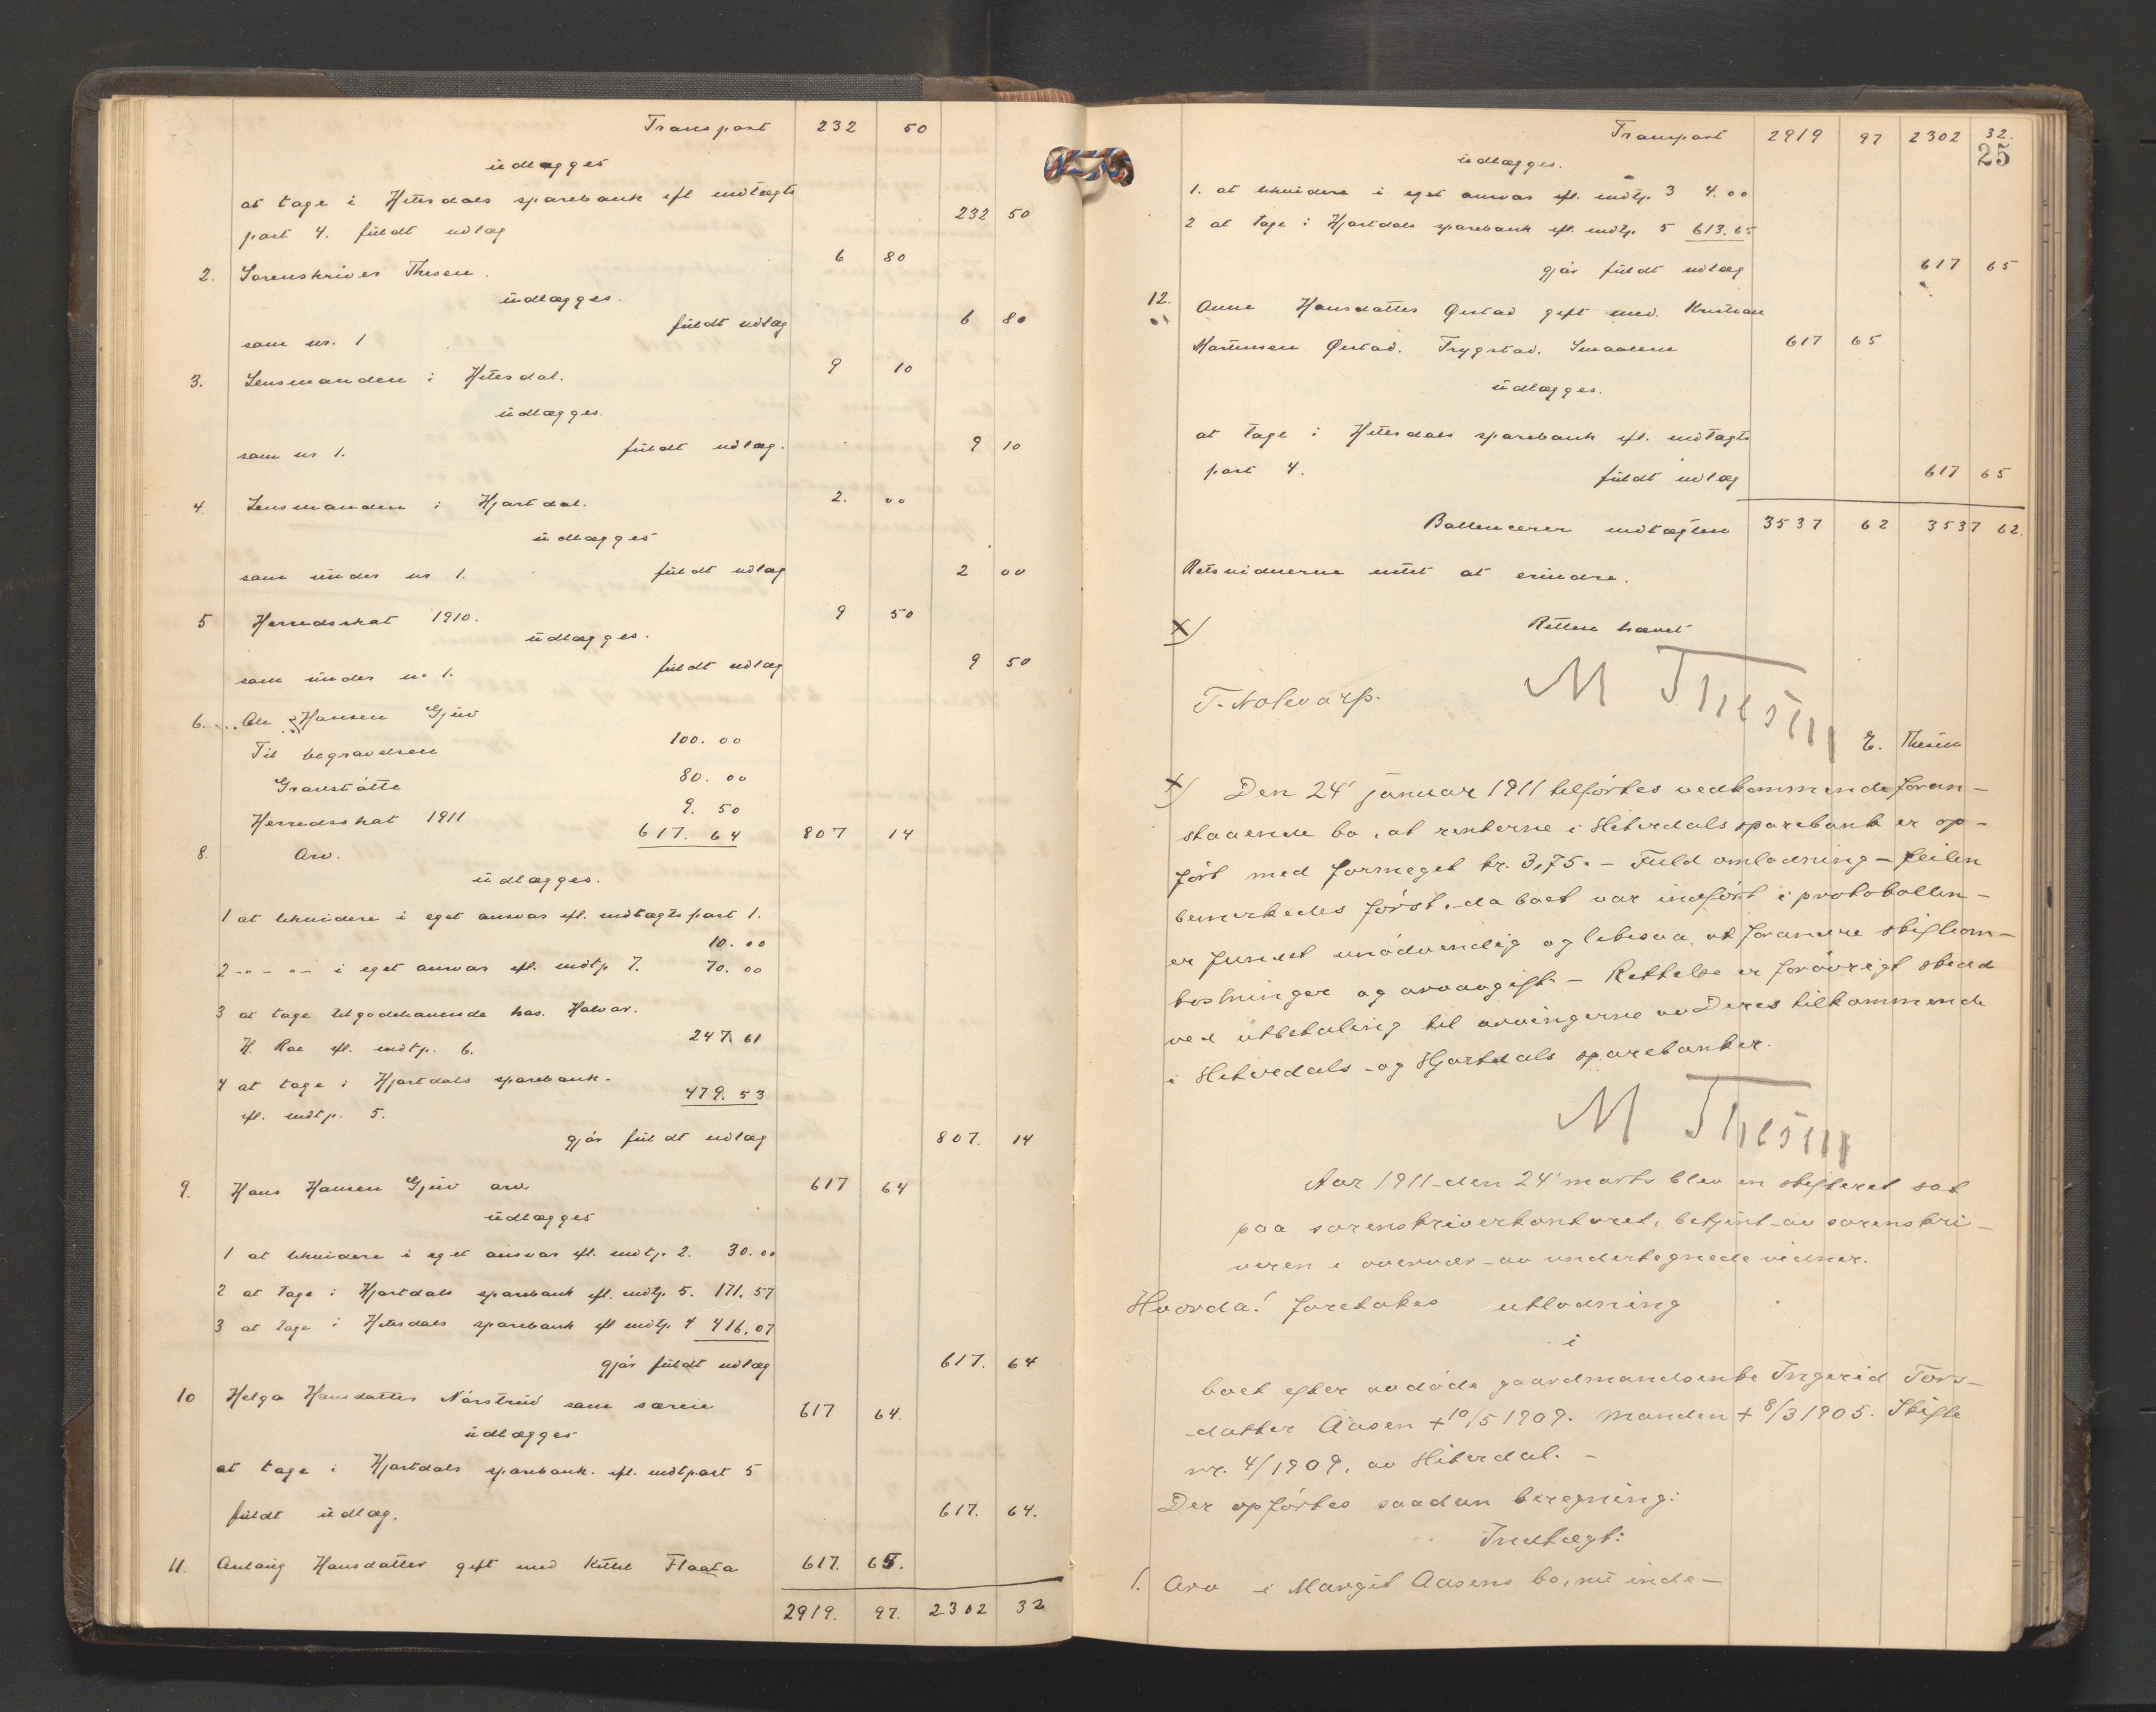 Transport 232 50
udlægges
at tage i Hiterdals sparebank efl indtægts
post 4. fuldt udlæg 232 50
2. Sorenskriver Thesen. 6 80
udlægges.
som nr. 1 fuldt udlæg 6 80
3. Lensmanden i Hiterdal. 9 10
udlægges.
som nr 1. fuldt udlæg. 9 10
4. Lensmanden i Hjartdal. 2. 00
udlægges
som under nr 1. fuldt udlæg 2 00
5 Herredsskat 1910. 9 50
udlægges.
som under nr 1. fuldt udlæg 9 50
6. Ole Hansen Gjuv
Til begravelsen 100. 00
Gravstøtte 80. 00
Herredsskat 1911 9. 50
8. Arv. 617. 64 807 14
udlægges.
1 at likvidere i eget ansvar efl. indtægts post 1.
10. 00
2 -"- -"- i eget ansvar efl. indtp 7. 70. 00
3 at tage tilgodehavende hos. Halvor.
H. Roe efl. indtp. 6. 247. 61
4 at tage i Hjartdals sparebank.
efl. indtp. 5. 479. 53
gjør fuldt udlæg 807. 14
9. Hans Hansen Gjuv arv. 617 64
udlægges
1 at likvidere i eget ansvar efl. indtp 2. 30. 00
2 at tage i Hjartdals sparebank efl. indtp. 5. 171. 57
3 at tage i Hiterdals sparebank efl indtp. 4 416, 07
gjør fuldt udlæg 617. 64
10 Helga Hansdatter Nørstrud som særeie 617 64.
udlægges
at tage i Hjartdals sparebank. efl. indtpost 5
fuldt udlæg. 617. 64.
11. Anlaug Hansdatter gift med Kittil Flaata 617. 65.
2919. 97. 2302 32
Transport 2919 97 2302 32.
25
udlægges.
1. at likvidere i eget ansvar efl. indtp. 3 4. 00
2 at tage i Hjartdals sparebank efl. indtp. 5 613. 65
gjør fuldt udlæg 617 65
12. Anne Hansdatter Ørstad gift med. Kristian
Martinsen Ørstad. Trygstad. Smaalene 617 65
udlægges.
at tage i Hiterdals sparebank efl. indtægts
post 4. fuldt udlæg 617 65
Ballencerer indtægten 3537 62 3537 62.
Retsvidnerne intet at erindre.
x) Retten hævet
M Thesen
T. Nolevarp.
E. Thesen
x) Den 24' januar 1911 tilførtes vedkommende foran-
staaende bo, at renterne i Hiterdals sparebank er op-
ført med formeget kr. 3,75. - Fuld omlodning - feilen
bemerkedes først, da boet var indført i protokollen -
er fundet unødvendig og likesaa at forandre skifteom-
kostninger og arveavgift. - Rettelse er forøvrigt skedd
ved utbetaling til arvingerne av Deres tilkommende
i Hiterdals - og Hjartdals sparebanker.
M Thesen
Aar 1911 - den 24' marts blev en skifteret sat
paa sorenskriverkontoret, betjent av sorenskri-
veren i overvær av undertegnede vidner.
Hvorda! foretokes utlodning
i
boet efter avdøde gaardmandsenke Ingerid Tors-
datter Aasen + 10/5 1909. Manden + 8/3 1905. Skifte
nr. 4/1909, av Hiterdal. -
Der opførtes saadan beregning:
Indtægt:
1. Arv i Margit Aasens bo, nu inde-